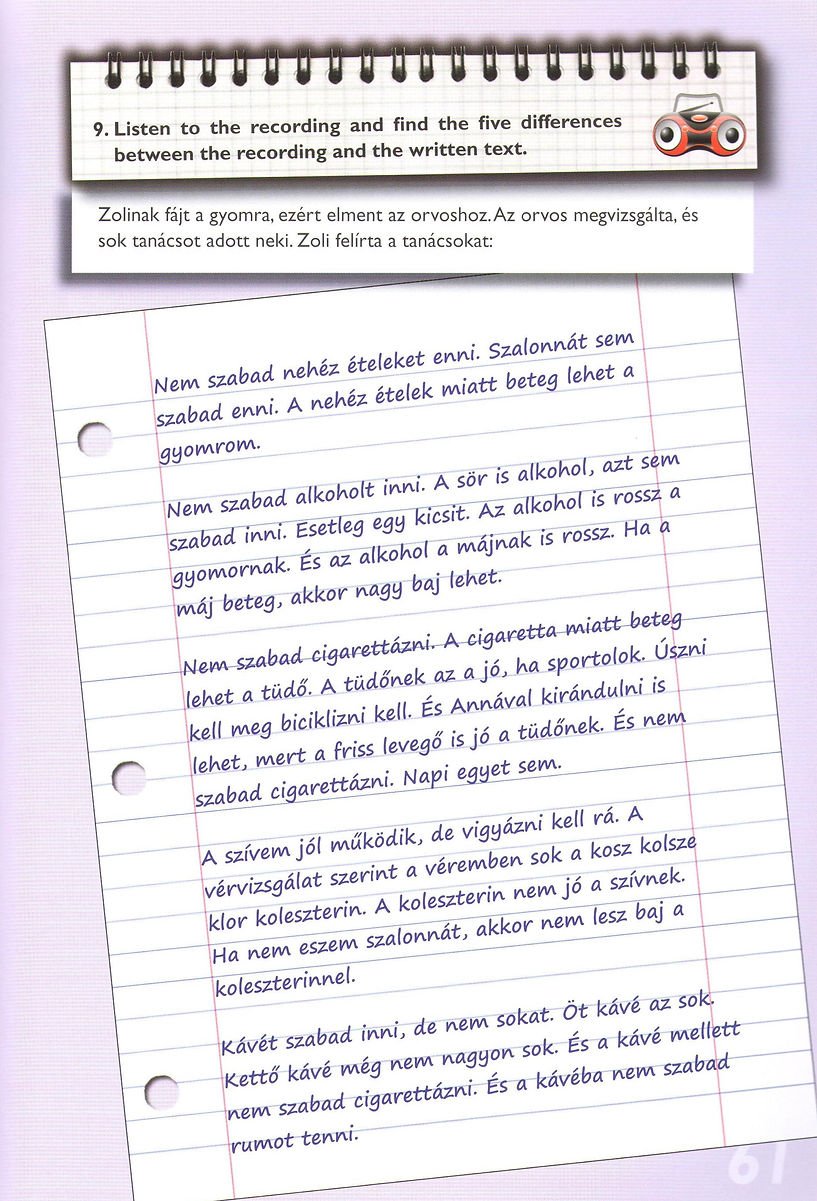 9. Listen to the recording and find the five differences
between the recording and the written text.
Zolinak fájt a gyomra, ezért elment az orvoshoz. Az orvos megvizsgálta, és
sok tanácsot adott neki. Zoli felírta a tanácsokat:
Nem szabad nehéz ételeket enni. Szalonnát sem
szabad enni. A nehéz ételek miatt beteg lehet a
gyomrom.
Nem szabad alkoholt inni. A sör is alkohol, azt sem
szabad inni. Esetleg egy kicsit. Az alkohol is rossz a
gyomornak. És az alkohol a májnak is rossz. Ha a
máj beteg, akkor nagy baj lehet.
Nem szabad cigarettázni. A cigaretta miatt beteg
lehet a tüdő. A tüdőnek az a jó, ha sportolok. Úszni
kell meg biciklizni kell. És Annával kirándulni is
lehet, mert a friss levegő is jó a tüdőnek. És nem
szabad cigarettázni. Napi egyet sem.
A szívem jól működik, de vigyázni kell rá. A
vérvizsgálat szerint a véremben sok a kosz kolsze
klor koleszterin. A koleszterin nem jó a szívnek.
Ha nem eszem szalonnát, akkor nem lesz baj a
koleszterinnel.
Kávét szabad inni, de nem sokat. Öt kávé az sok.
Kettő kávé még nem nagyon sok. És a kávé mellett
nem szabad cigarettázni. És a kávéba nem szabad
rumot tenni.
61